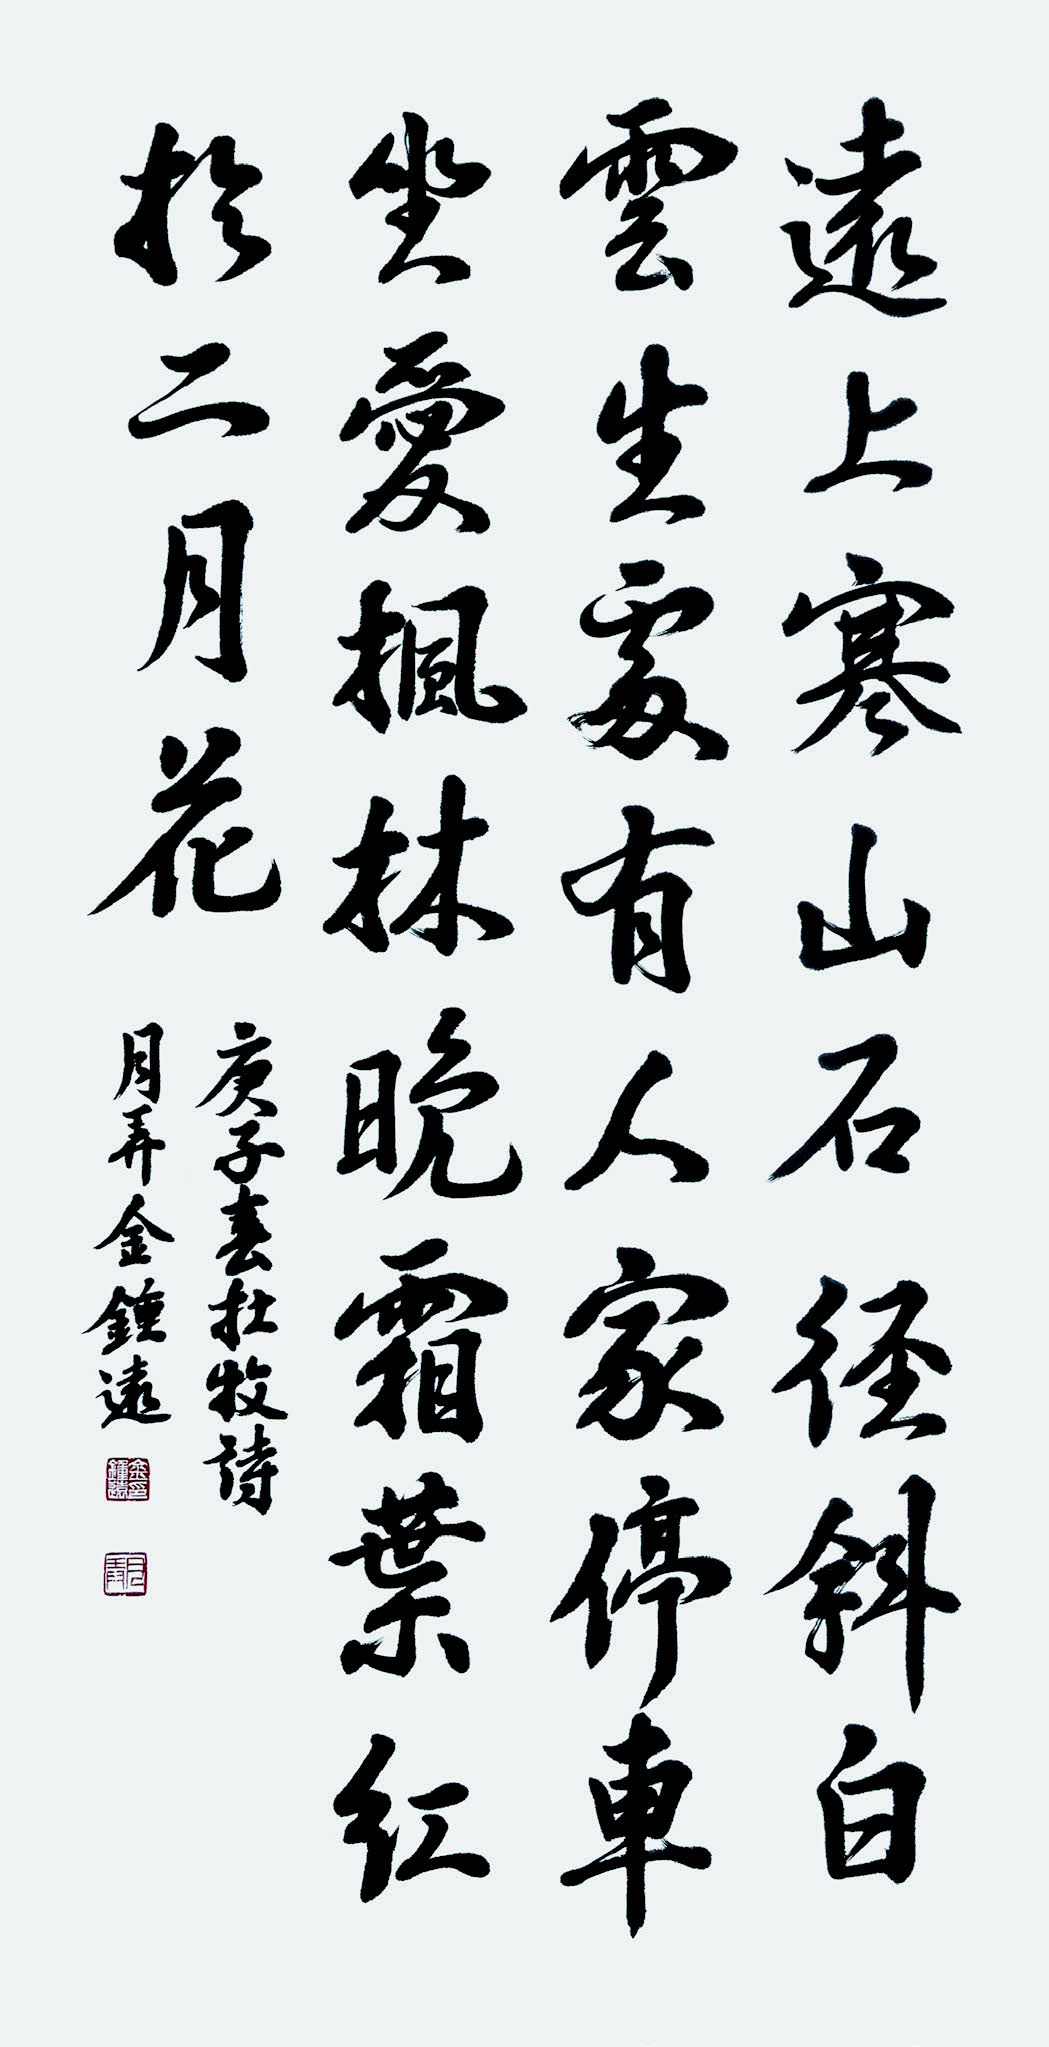 遠上寒山石径斜白
雲生處有人家停車
坐愛楓林晚霜葉红
於二月花
庚子春杜牧詩
月弄金鍾遠
金印鍾遠
月弄